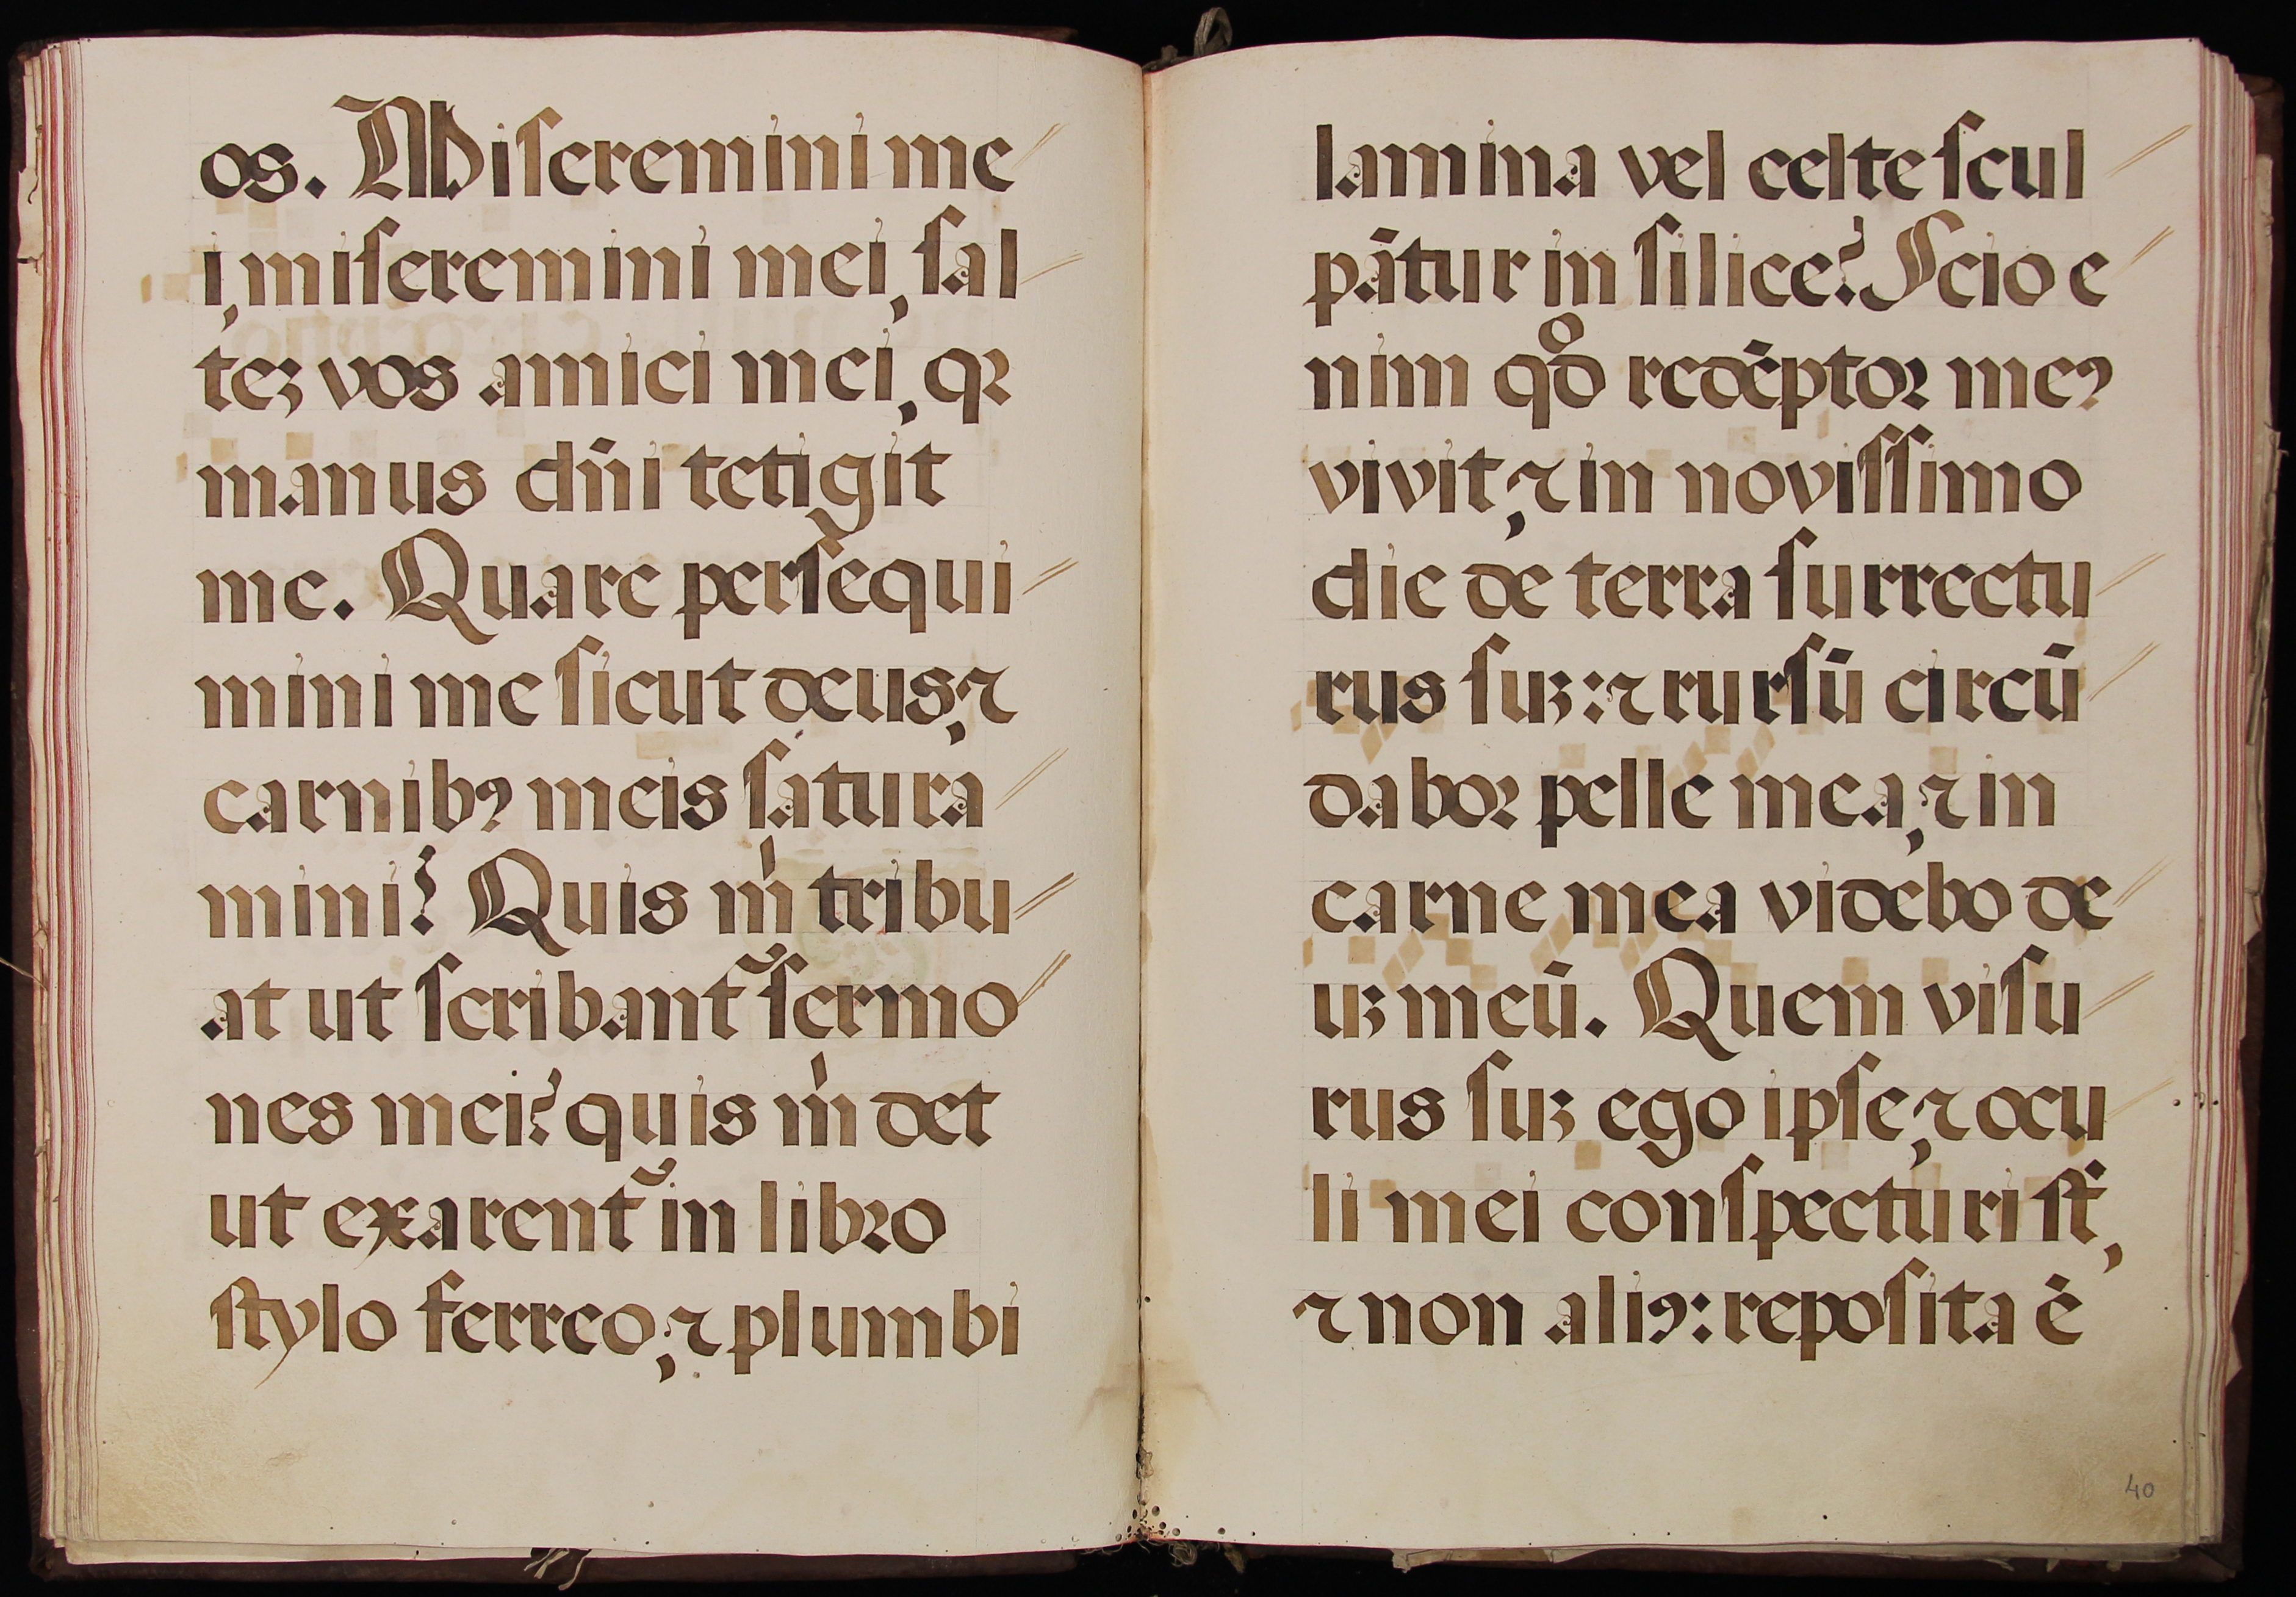 os. Miſeremini me
i, miſeremini mei, ſal
teʒ vos amici mei, qꝛ
manus dn̄i tetigit
me. Quare perſequi
mini me ſicut deus, ⁊
carnibꝰ meis ſatura
mini? Quis m̍ tribu
at ut ſcribant̃ ſermo
nes mei? quis m̍ det
ut exarent̃ in libro
ſtylo ferreo, ⁊ plumbi
lamina vel celte ſcul
pātur in ſilice? Scio e
nim qͦd redēptoꝛ meꝰ
vivit, ⁊ in noviſſimo
die de terra ſurrectu
rus ſuʒ: ⁊ rurſū circū
daboꝛ pelle mea, ⁊ in
carne mea videbo de
uʒ meū. Quem viſu
rus ſuʒ ego ipſe, ⁊ ocu
li mei conſpecturi ſt̄,
⁊ non aliꝰ: repoſita ē
40